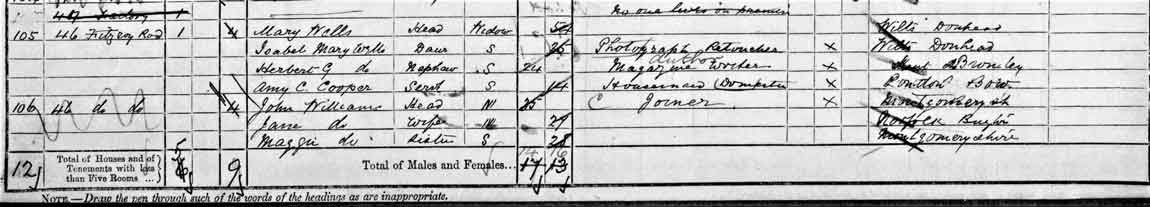 47 Factory 1 No one lives in premises
105 46 Fitzroy Road 1 4 Mary Wells Head Widow 54 Wilts Donhead
Isabel Mary Wells Daur S 25 Photograph Retoucher X Wilts Donhead
Herbert G do Nephew S 24 Magazine Writer X Kent Bromley
Amy C. Cooper Servt S 14 Housemaid (Domestic) X London Bow
106 46 do do 4 John Williams Head M 25 Joiner X
Jane do Wife M 27 Norfolk
Maggie do Sister S 28 Montgomeryshire
12 Total of Houses and of Tenements with less than Five Rooms ... 9 Total of Males and Females... 17 13
NOTE.—Draw the pen through such of the words of the headings as are inappropriate.